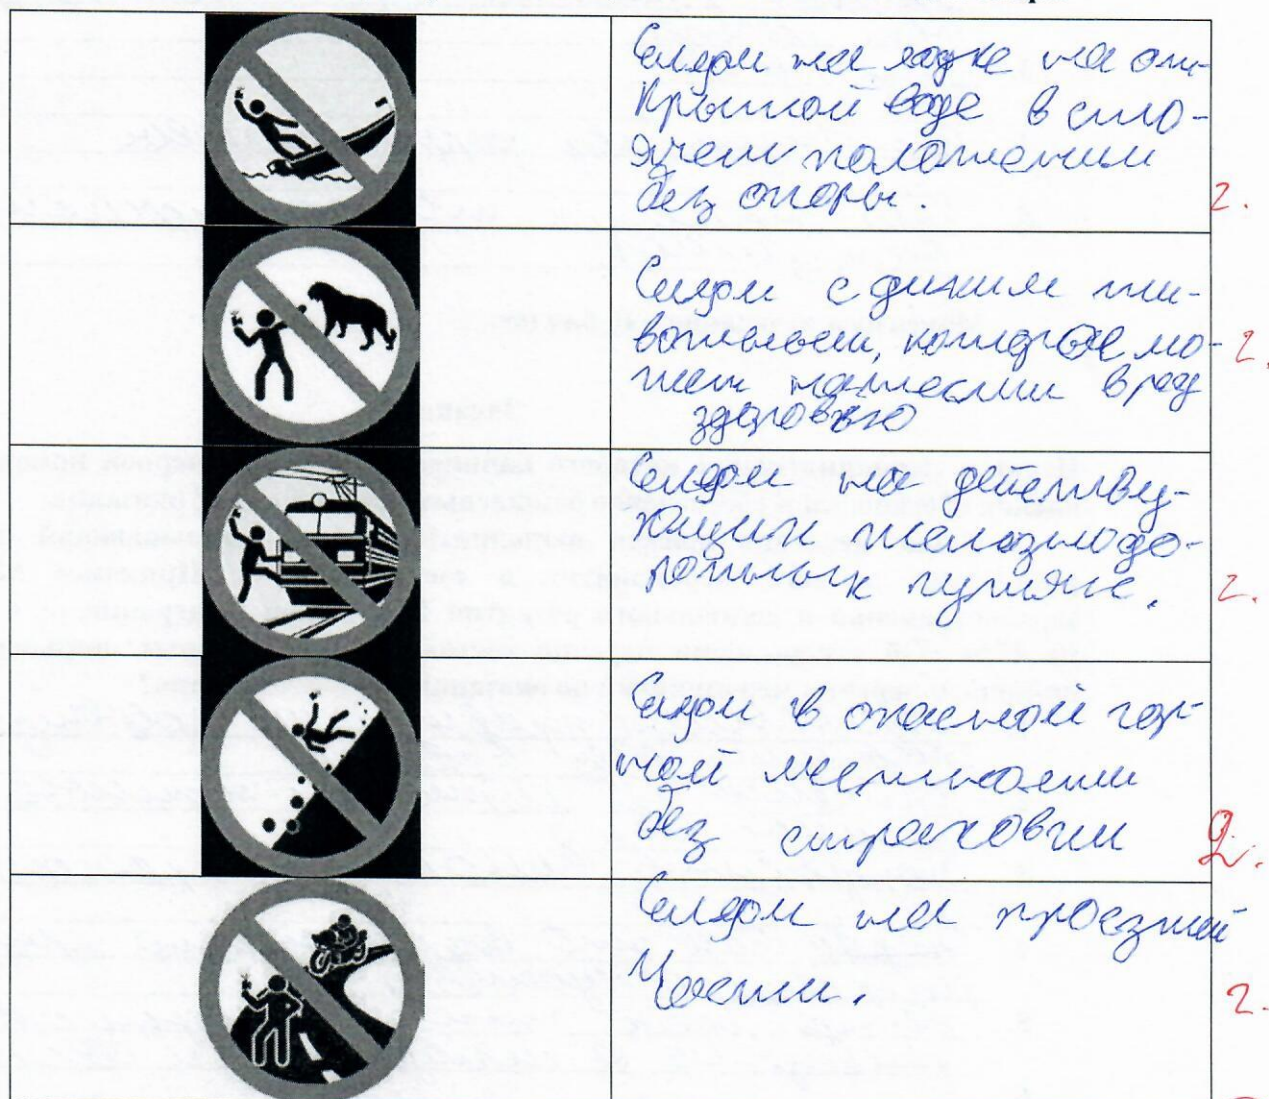 Селфи на лодке на от-
крытой воде в сто-
ячем положении
без опоры.
2.
Селфи с диким жи-
вотным, которое мо-
жет нанести вред
здоровью
2.
Селфи на действу-
ющих железнодо-
рожных путях.
2.
Селфи в опасной гор-
ной местности
без страховки
2.
Селфи на проезжей
части.
2.